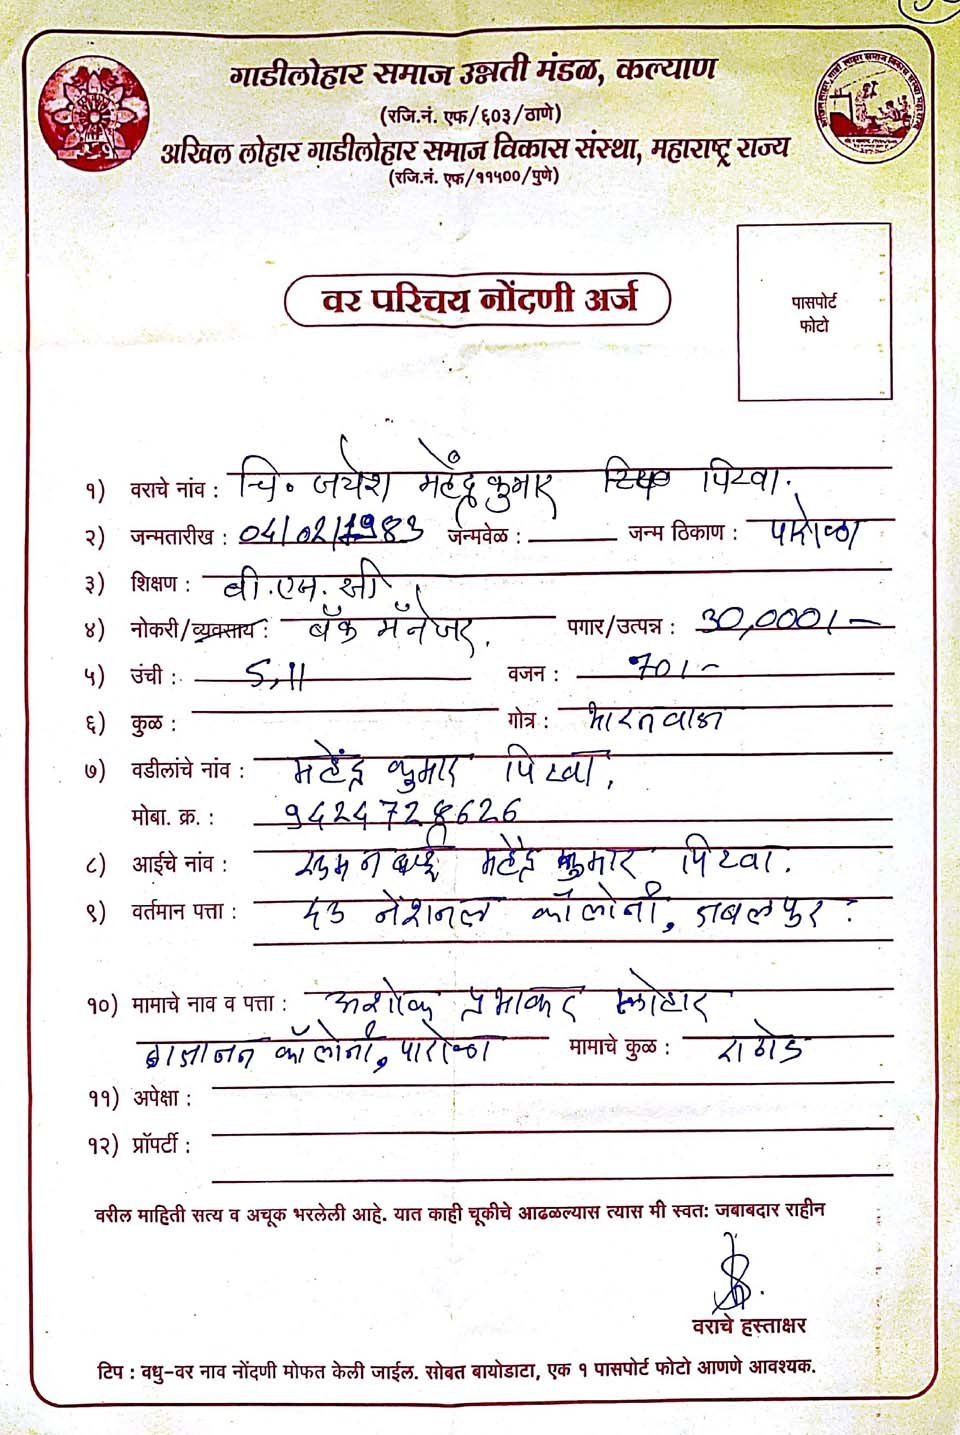 गाडीलोहार समाज उन्नती मंडळ, कल्याण
(रजि.नं. एफ/६०३/ठाणे)
अखिल लोहार गाडीलोहार समाज विकास संस्था, महाराष्ट्र राज्य
(रजि.नं. एफ/११५००/पुणे)
पासपोर्ट
फोटो
वर परिचय नोंदणी अर्ज
१) वराचे नांव : चि. जयेश महेंद्रकुमार पिरवा.
२) जन्मतारीख : 04/02/1983 जन्मवेळ : जन्म ठिकाण : पारोळा
३) शिक्षण : बी.एस.सी
४) नोकरी/व्यवसाय : बँक मॅनेजर. पगार/उत्पन्न : 30,000/-
५) उंची : 5,11 वजन : 70/-
६) कुळ : गोत्र :
७) वडीलांचे नांव : महेंद्र कुमार पिरवा.
मोबा. क्र. : 9424728626
८) आईचे नांव : सुमनबाई महेंद्रकुमार पिरवा.
९) वर्तमान पत्ता : नॅशनल कॉलोनी, जबलपुर.
१०) मामाचे नाव व पत्ता : अशोक प्रभाकर लोहार
गजानन कॉलोनी, पारोळा मामाचे कुळ : राठोड
११) अपेक्षा :
१२) प्रॉपर्टी :
वरील माहिती सत्य व अचूक भरलेली आहे. यात काही चूकीचे आढळल्यास त्यास मी स्वत: जबाबदार राहीन
वराचे हस्ताक्षर
टिप : वधु-वर नाव नोंदणी मोफत केली जाईल. सोबत बायोडाटा, एक १ पासपोर्ट फोटो आणणे आवश्यक.